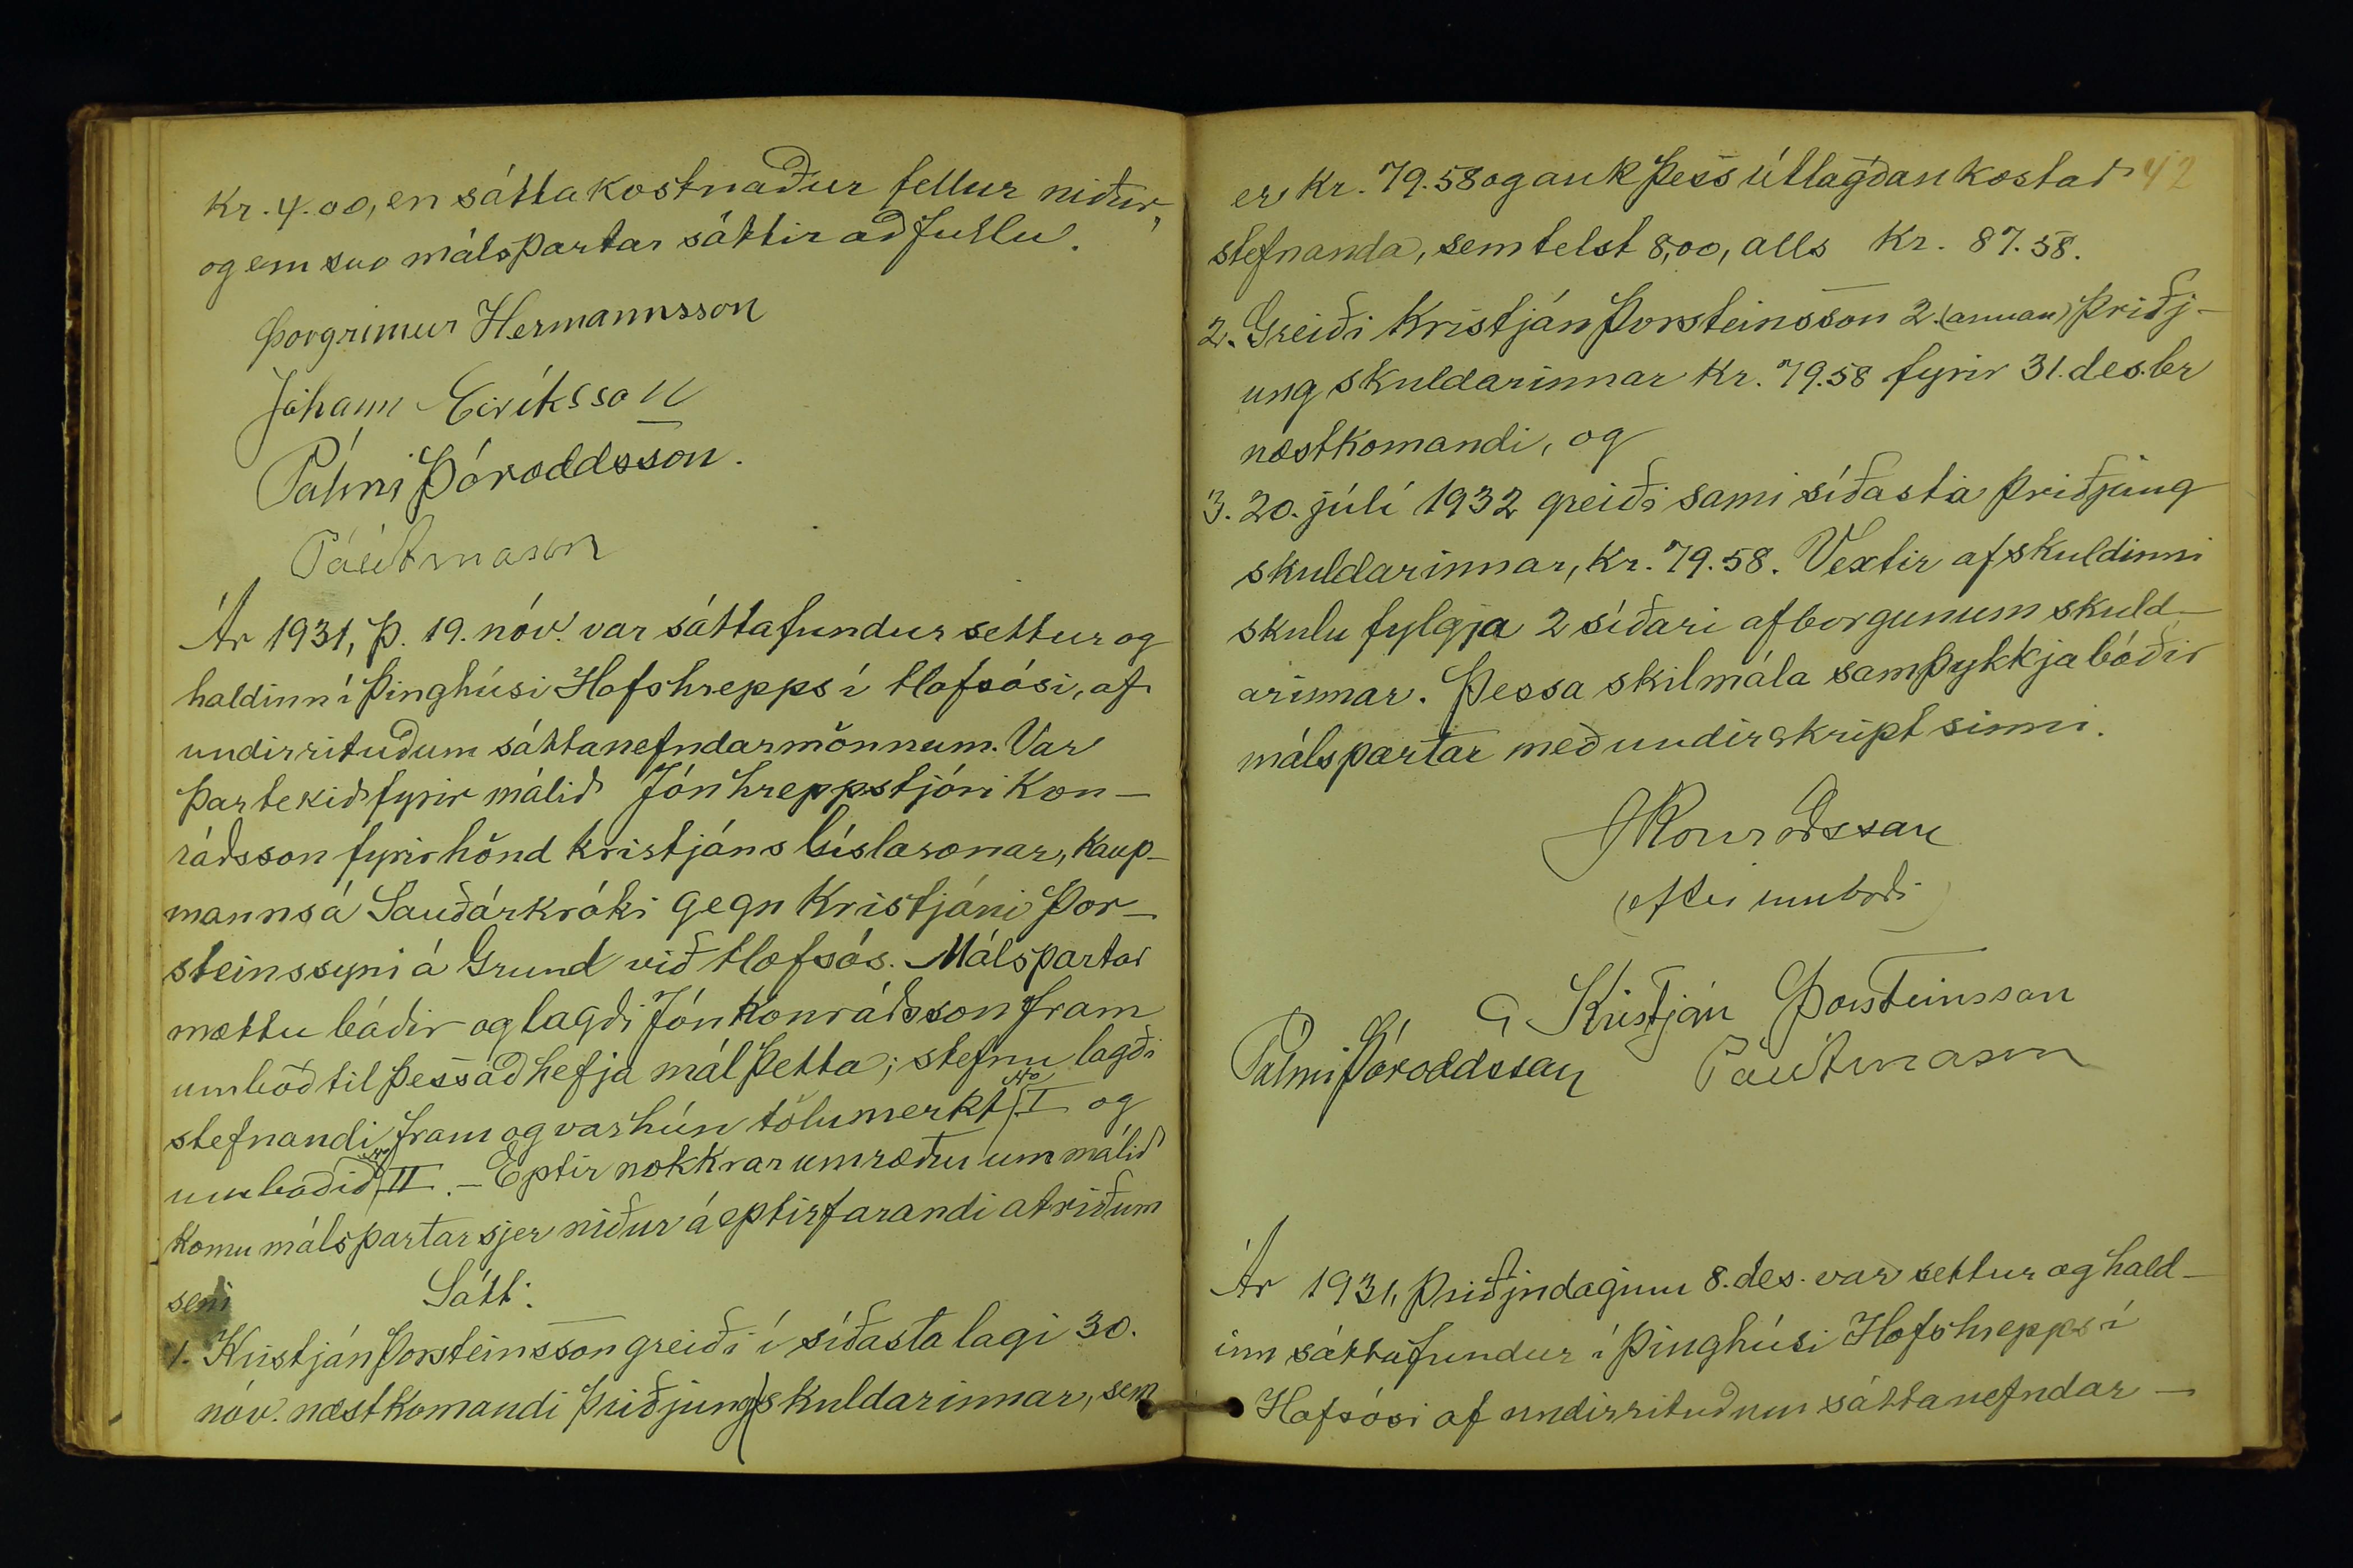 Kr. 4.00, en sáttakostnaður fellur niður,
og eru svo málspartar sáttir að fullu.
Þorgrímur Hermannsson
Jóhann Eiríksson
Pálmi Þóroddsson.
Ár 1931, þ. 19. nóv. var sáttafundur settur og
haldinn í Þinghúsi Hofshrepps í Hofsósi, af
undirrituðum sáttanefndarmönnum. Var
þar tekið fyrir málið Jón hreppstjóri Kon-
ráðsson fyrir hönd Kristjáns Gíslasonar, kaup-
manns á Sauðárkróki gegn Kristjáni Þor-
steinssyni á Grund við Hofsós. Málspartar
mættu báðir og lagði Jón Konráðsson fram
umboð til þess að hefja mál þetta; stefnu lagði
stefnandi fram og var hún tölumerkt No I og
umboðið No II. - Eptir nokkrar umræður um málið
komu málspartar sjer niður á eptirfarandi atriðum
sem Sátt:
1. Kristján Þorsteinsson greiði í síðasta lagi 30.
nóv. næstkomandi þriðjung skuldarinnar, sem
42
er Kr. 79.58 og auk þess útlagðan kostað
stefnanda, sem telst 8,00, alls Kr. 87.58.
2. Greiði Kristján Þorsteinsson 2. (annan) þriðj-
ung skuldarinnar Kr. 79.58 fyrir 31. des.br
næstkomandi, og
3. 20. júlí 1932 greiði sami síðasta þriðjung
skuldarinnar, Kr. 79.58. Vextir af skuldinni
skulu fylgja 2 síðari afborgunum skuld-
arinnar. Þessa skilmála samþykkja báðir
málspartar með undirskript sinni.
JKonráðsson
(eftir umboði)
Kristján Þorsteinsson
Pálmi Þóroddsson
Ár 1931, þriðjudaginn 8. des. var settur og hald-
inn sáttafundur í Þinghúsi Hofshrepps í
Hofsósi af undirrituðum sáttanefndar-